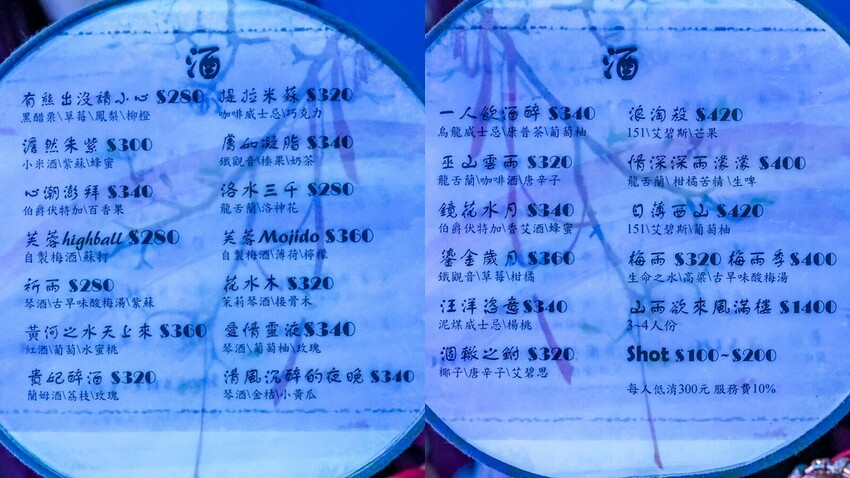 酒
有熊出沒請小心 $280
黑醋栗\草莓\鳳梨\柳橙
提拉米蘇 $320
咖啡威士忌\巧克力
滬然朱紫 $300
小米酒\紫蘇\蜂蜜
膚如凝脂 $340
鐵觀音\榛果\奶茶
心潮澎拜 $340
伯爵伏特加\百香果
洛水三千 $280
龍舌蘭\洛神花
芙蓉highball $280
自製梅酒\蘇打
芙蓉Mojido $360
自製梅酒\薄荷\檸檬
祈雨 $280
琴酒\古早味酸梅湯\紫蘇
花水木 $320
茉莉琴酒\接骨木
黃河之水天上來 $360
紅酒\葡萄\水蜜桃
愛情靈液$340
琴酒\葡萄柚\玫瑰
貴妃醉酒 $320
蘭姆酒\荔枝\玫瑰
清風沉醉的夜晚 $340
琴酒\金桔\小黃瓜
酒
一人飲酒醉 $340
烏龍威士忌\康普茶\葡萄柚
浪淘殺 $420
151\艾碧斯\芒果
巫山雲雨 $320
龍舌蘭\咖啡酒\唐辛子
情深深雨濛濛 $400
龍舌蘭\柑橘苦精\生啤
鏡花水月 $340
伯爵伏特加\香艾酒\蜂蜜
日薄西山 $420
151\艾碧斯\葡萄柚
鎏金歲月 $360
鐵觀音\草莓\柑橘
梅雨 $320 梅雨季$400
生命之水\高粱\古早味酸梅湯
汪洋恣意$340
泥煤威士忌\楊桃
山雨欲來風滿樓 $1400
3~4人份
涸轍之鮒 $320
椰子\唐辛子\艾碧思
Shot $100~$200
每人低消300元 服務費10%